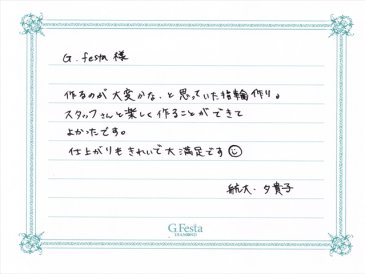 G. festa 様
作るのが大変かな、と思っていた指輪作り。
スタッフさんと楽しく作ることができて
よかったです。
仕上がりもきれいで大満足です☺
航大・夕貴子
G.Festa
DIAMOND